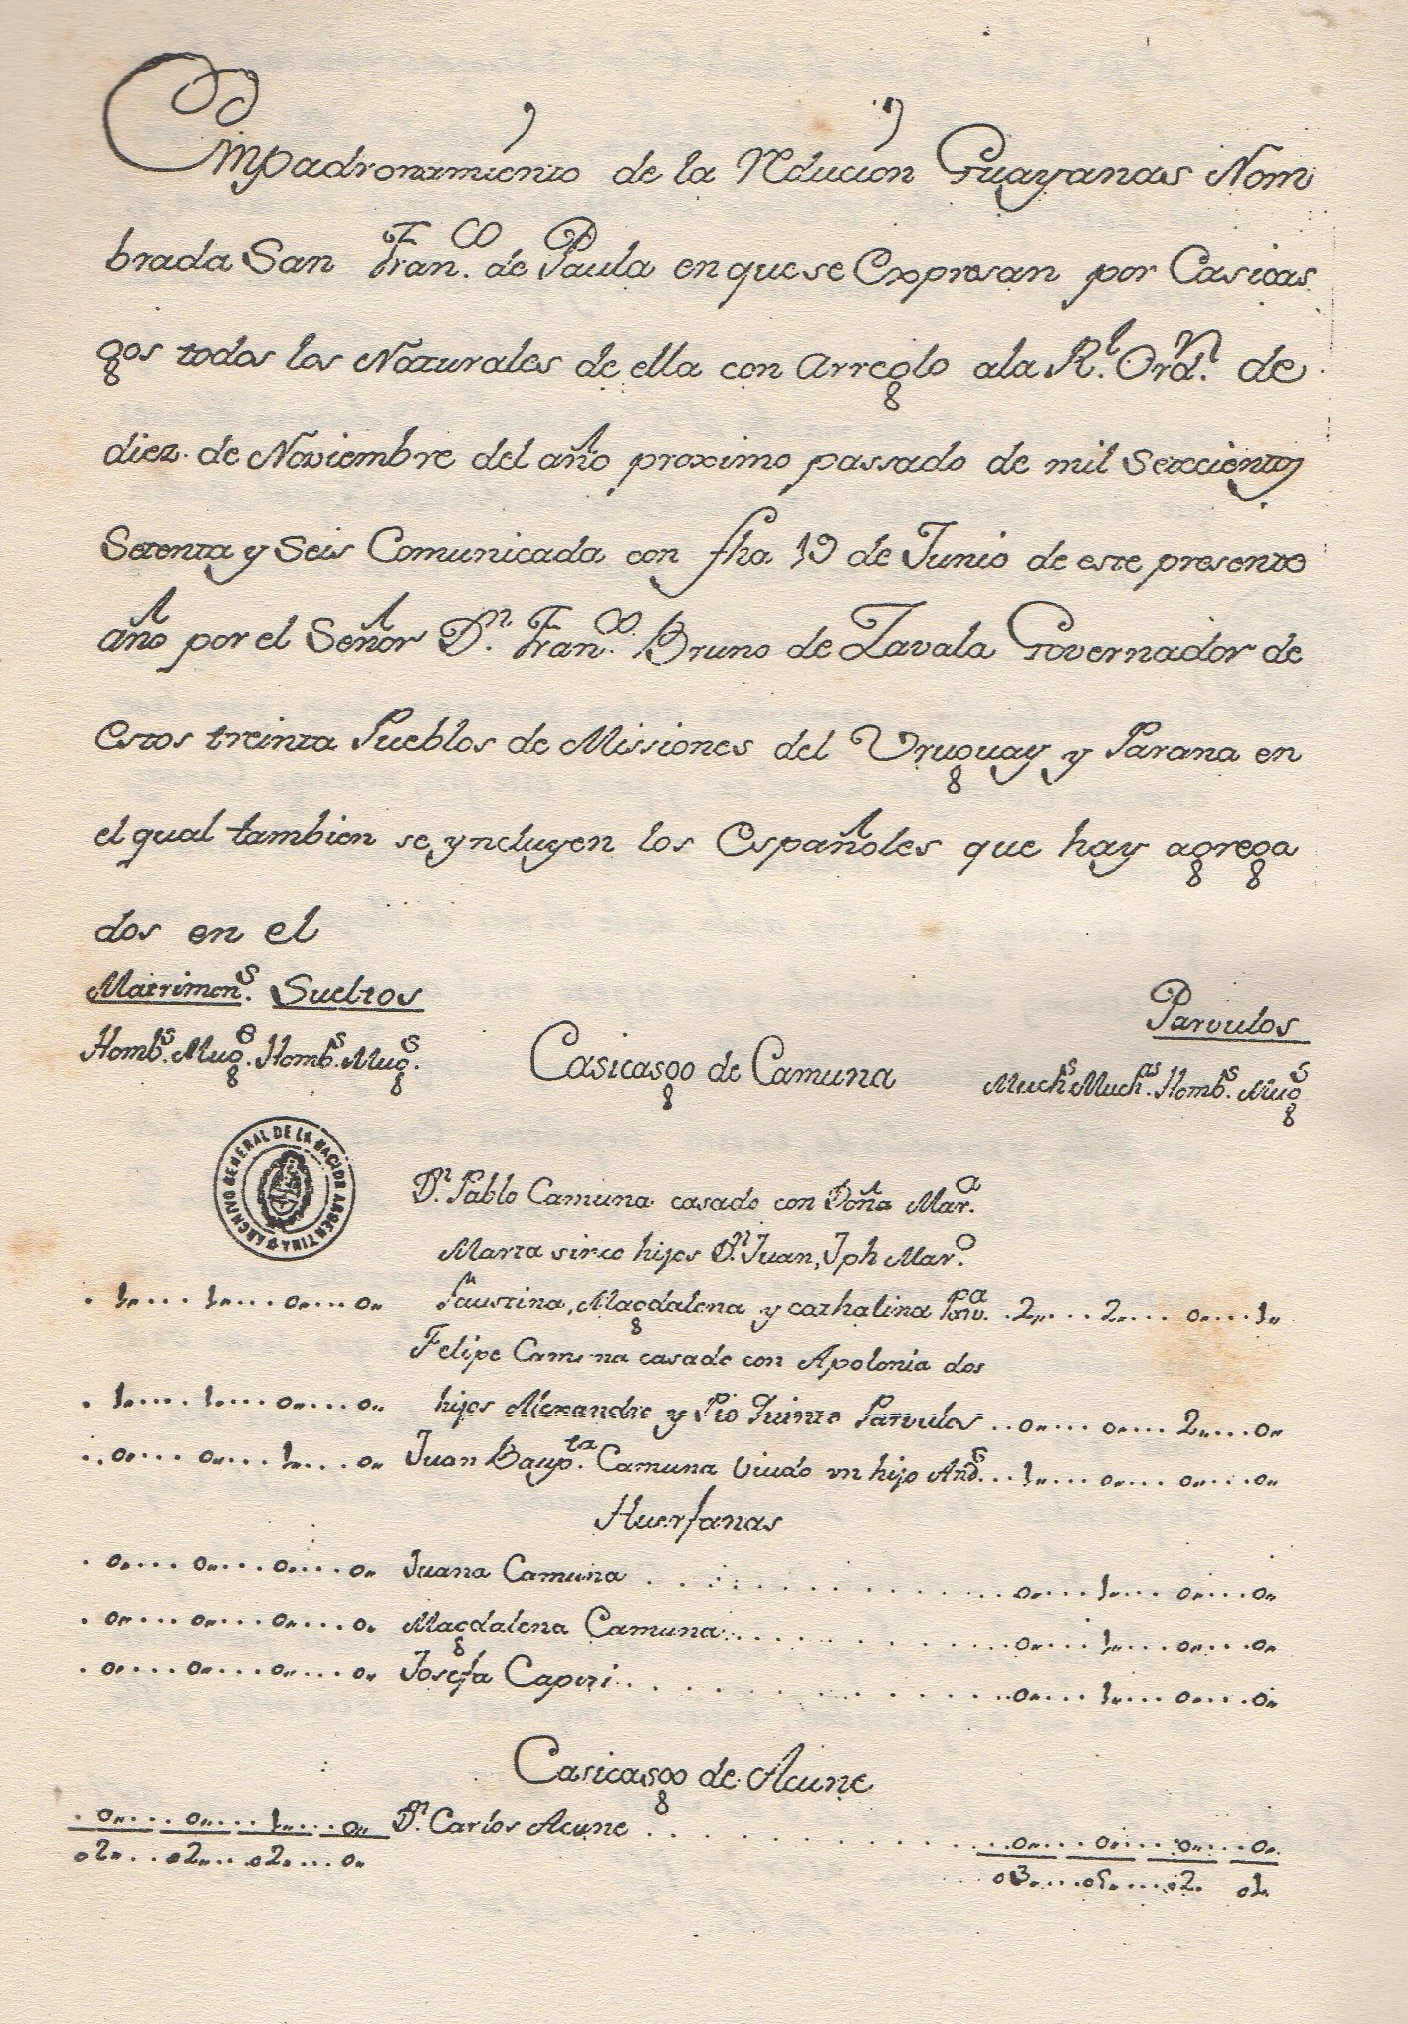 Empadronamiento de la Rducion Guayanas Nom
brada San Fran.co de Paula en que se Expresan por Casicas
gos todos los Naturales de ella con arreglo ala R.l Ord.n de
diez de Noviembre del año proximo passado de mil Setecientos
Setenta y Seis Comunicada con fha 19 de Junio de este presente
año por el Señor D.n Fran.co Bruno de Zavala Governador de
estos treinta Pueblos de Missiones del Uruguay y Parana en
el qual tambien se yncluyen los Españoles que hay agrega
dos en el
Matrimon.s Sueltos Parvulos
Homb.s Mug.e Homb.s Mug.s Casicasgo de Camuna Much.s Much.as Homb.s Mug.s
ARCHIVO GENERAL DE LA NACION ARGENTINA
D.n Pablo Camuna casado con Doña Mar.a
Marta sinco hijos D.n Juan, Jph Mar.o
. 1,,.... 1,,.... 0,,.... 0,, Faustina, Magdalena y cathalina Parv.a ..2,,.... 2,,.... 0,,.... 1,,
Felipe Camuna casado con Apolonia dos
. 1,,.... 1,,.... 0,,.... 0,, hijos Alexandro y Pio Quinto Parvulos ..0,,.... 0,,.... 2,,.... 0,,
.. 0,,.... 0,,.... 1,,.... 0,, Juan Bayp.ta Camuna Viudo vn hijo And.s ...1,,.... 0,,.... 0,,.... 0,,
Huerfanas
. 0,,.... 0,,.... 0,,.... 0,, Juana Camuna . . . . . . . . . . . . 0,,.... 1,,.... 0,,.... 0,,
. 0,,.... 0,,.... 0,,.... 0,, Magdalena Camuna . . . . . . . . . . 0,,.... 1,,.... 0,,.... 0,,
. 0,,.... 0,,.... 0,,.... 0,, Josefa Caperi . . . . . . . . . . . . 0,,.... 1,,.... 0,,.... 0,,
Casicasgo de Acune
. 0,,.... 0,,.... 1,,.... 0,, D.n Carlos Acune . . . . . . . . . . . . 0,,.... 0,,.... 0,,.... 0,,
02,,... 02,,... 02,,... 0,, 03,,.... 05,,.... 02. 01.